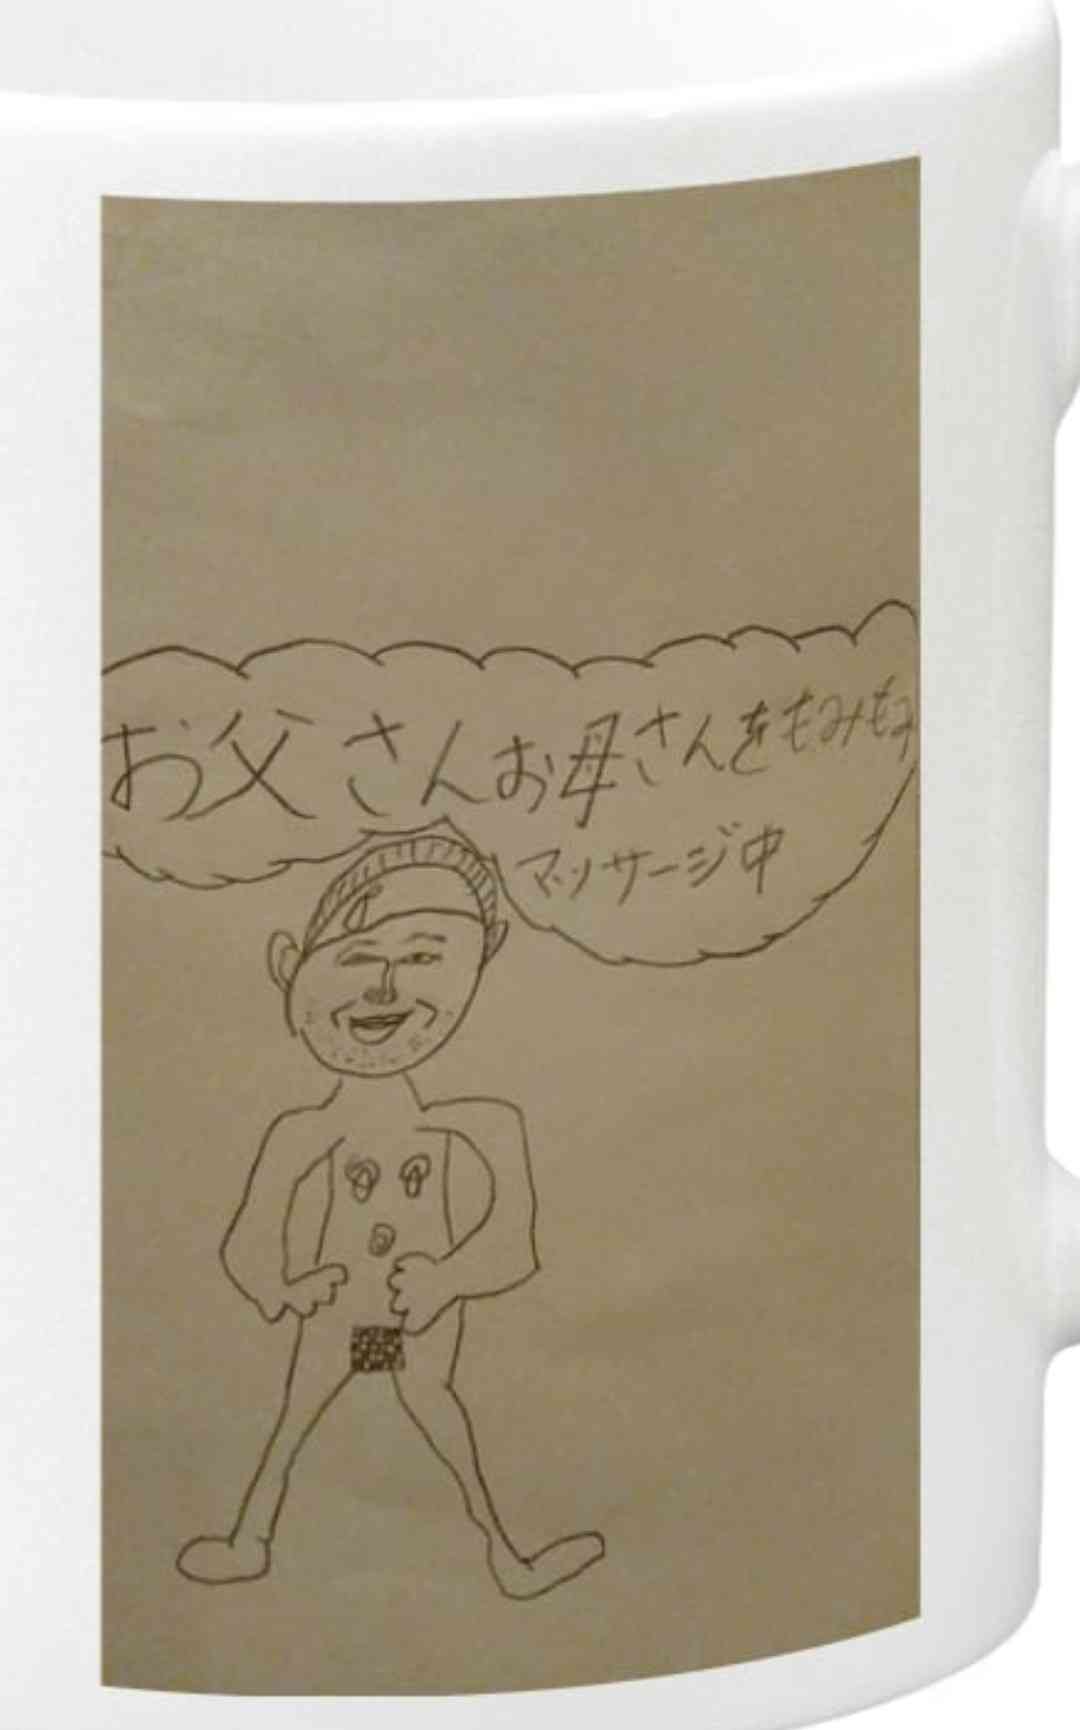 お父さんお母さんをもみもみ
マッサージ中